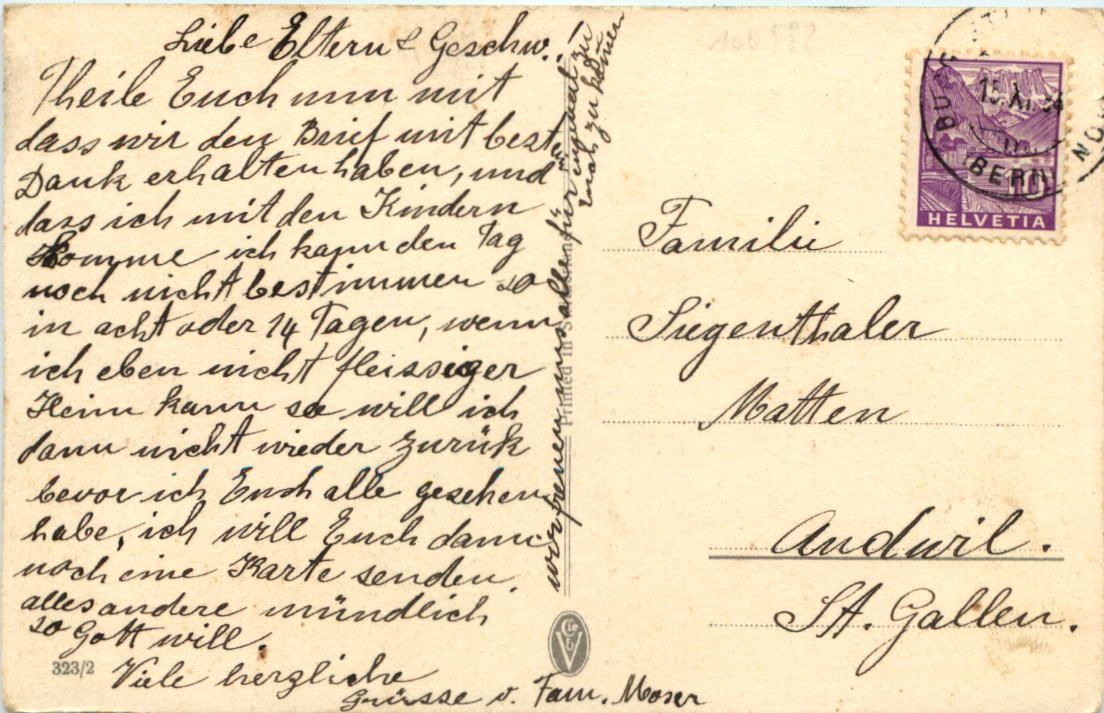 Liebe Eltern & Geschw.
Theile Euch nun mit
dass wir den Brief mit best.
Dank erhalten haben, und
dass ich mit den Kindern
komme ich kann den Tag
noch nicht bestimmen so
in acht oder 14 Tagen, wenn
ich eben nicht fleissiger
Heim kann so will ich
dann nicht wieder zurük
bevor ich Euch alle gesehen
habe, ich will Euch dann
noch eine Karte senden.
alles andere mündlich
so Gott will.
Viele herzliche
Grüsse v. Fam. Moser
wir freuen uns alle für einmal zu
Euch zu können
323/2
Printed in
HELVETIA
10
15.XI.34
(BERN)
Familie
Siegenthaler
Matten
Andwil.
St. Gallen.